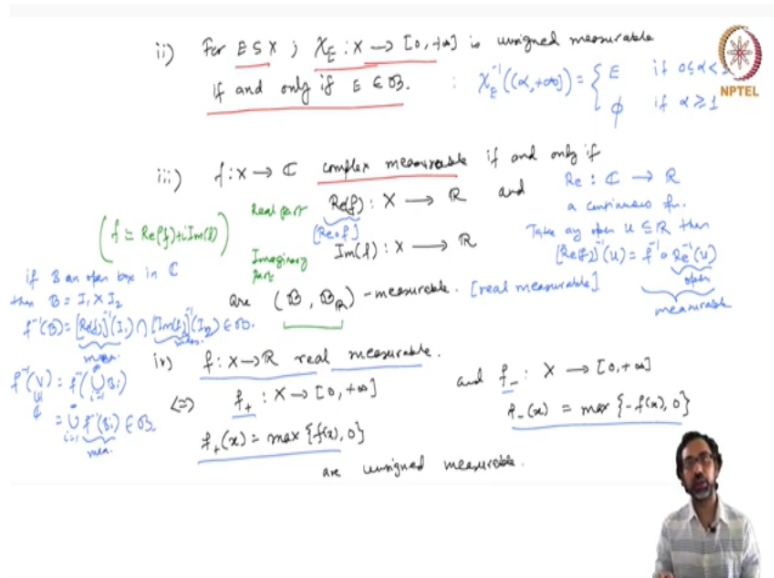 ii) For E ⊆ X ; χ_E : X → [0,+∞] is unsigned measurable
if and only if E ∈ 𝓑. : χ_E^{-1}((α,+∞]) = { E if 0≤α<1
φ if α≥1
NPTEL
iii) f: X → ℂ complex measurable if and only if
Real part Re(f) : X → ℝ and
[Re∘f]
(f = Re(f)+i Im(f))
Imaginary part Im(f) : X → ℝ
are (𝓑, 𝓑_ℝ) - measurable. [real measurable]
Re : ℂ → ℝ
a continuous fn.
Take any open U ⊆ ℝ then
[Re(f)]^{-1}(U) = f^{-1}∘Re^{-1}(U)
open
measurable
if B an open box in ℂ
then B = I_1 × I_2
f^{-1}(B) = [Re(f)]^{-1}(I_1) ∩ [Im(f)]^{-1}(I_2) ∈ 𝓑.
meas. meas.
f^{-1}(V) = f^{-1}(⋃_{i=1}^{∞} B_i)
ℂ
= ⋃_{i=1}^{∞} f^{-1}(B_i) ∈ 𝓑.
meas.
iv) f: X→ℝ real measurable.
⇔ f_+ : X → [0,+∞] and f_- : X → [0,+∞]
f_+(x) = max {f(x), 0} f_-(x) = max {-f(x), 0}
are unsigned measurable.